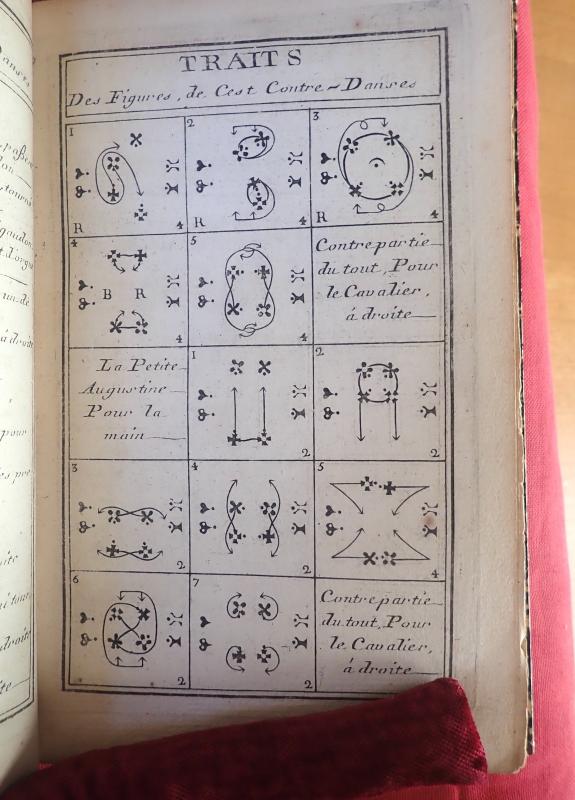 TRAITS
Des Figures, de Cest Contre-Danses
1
R
4
2
R
4
3
R
4
4
B R
4
5
4
Contrepartie
du tout, Pour
le Cavalier,
á droite
La Petite
Augustine
Pour la
main
1
2
2
2
3
2
4
2
5
4
6
2
7
2
Contrepartie
du tout, Pour
le Cavalier,
á droite